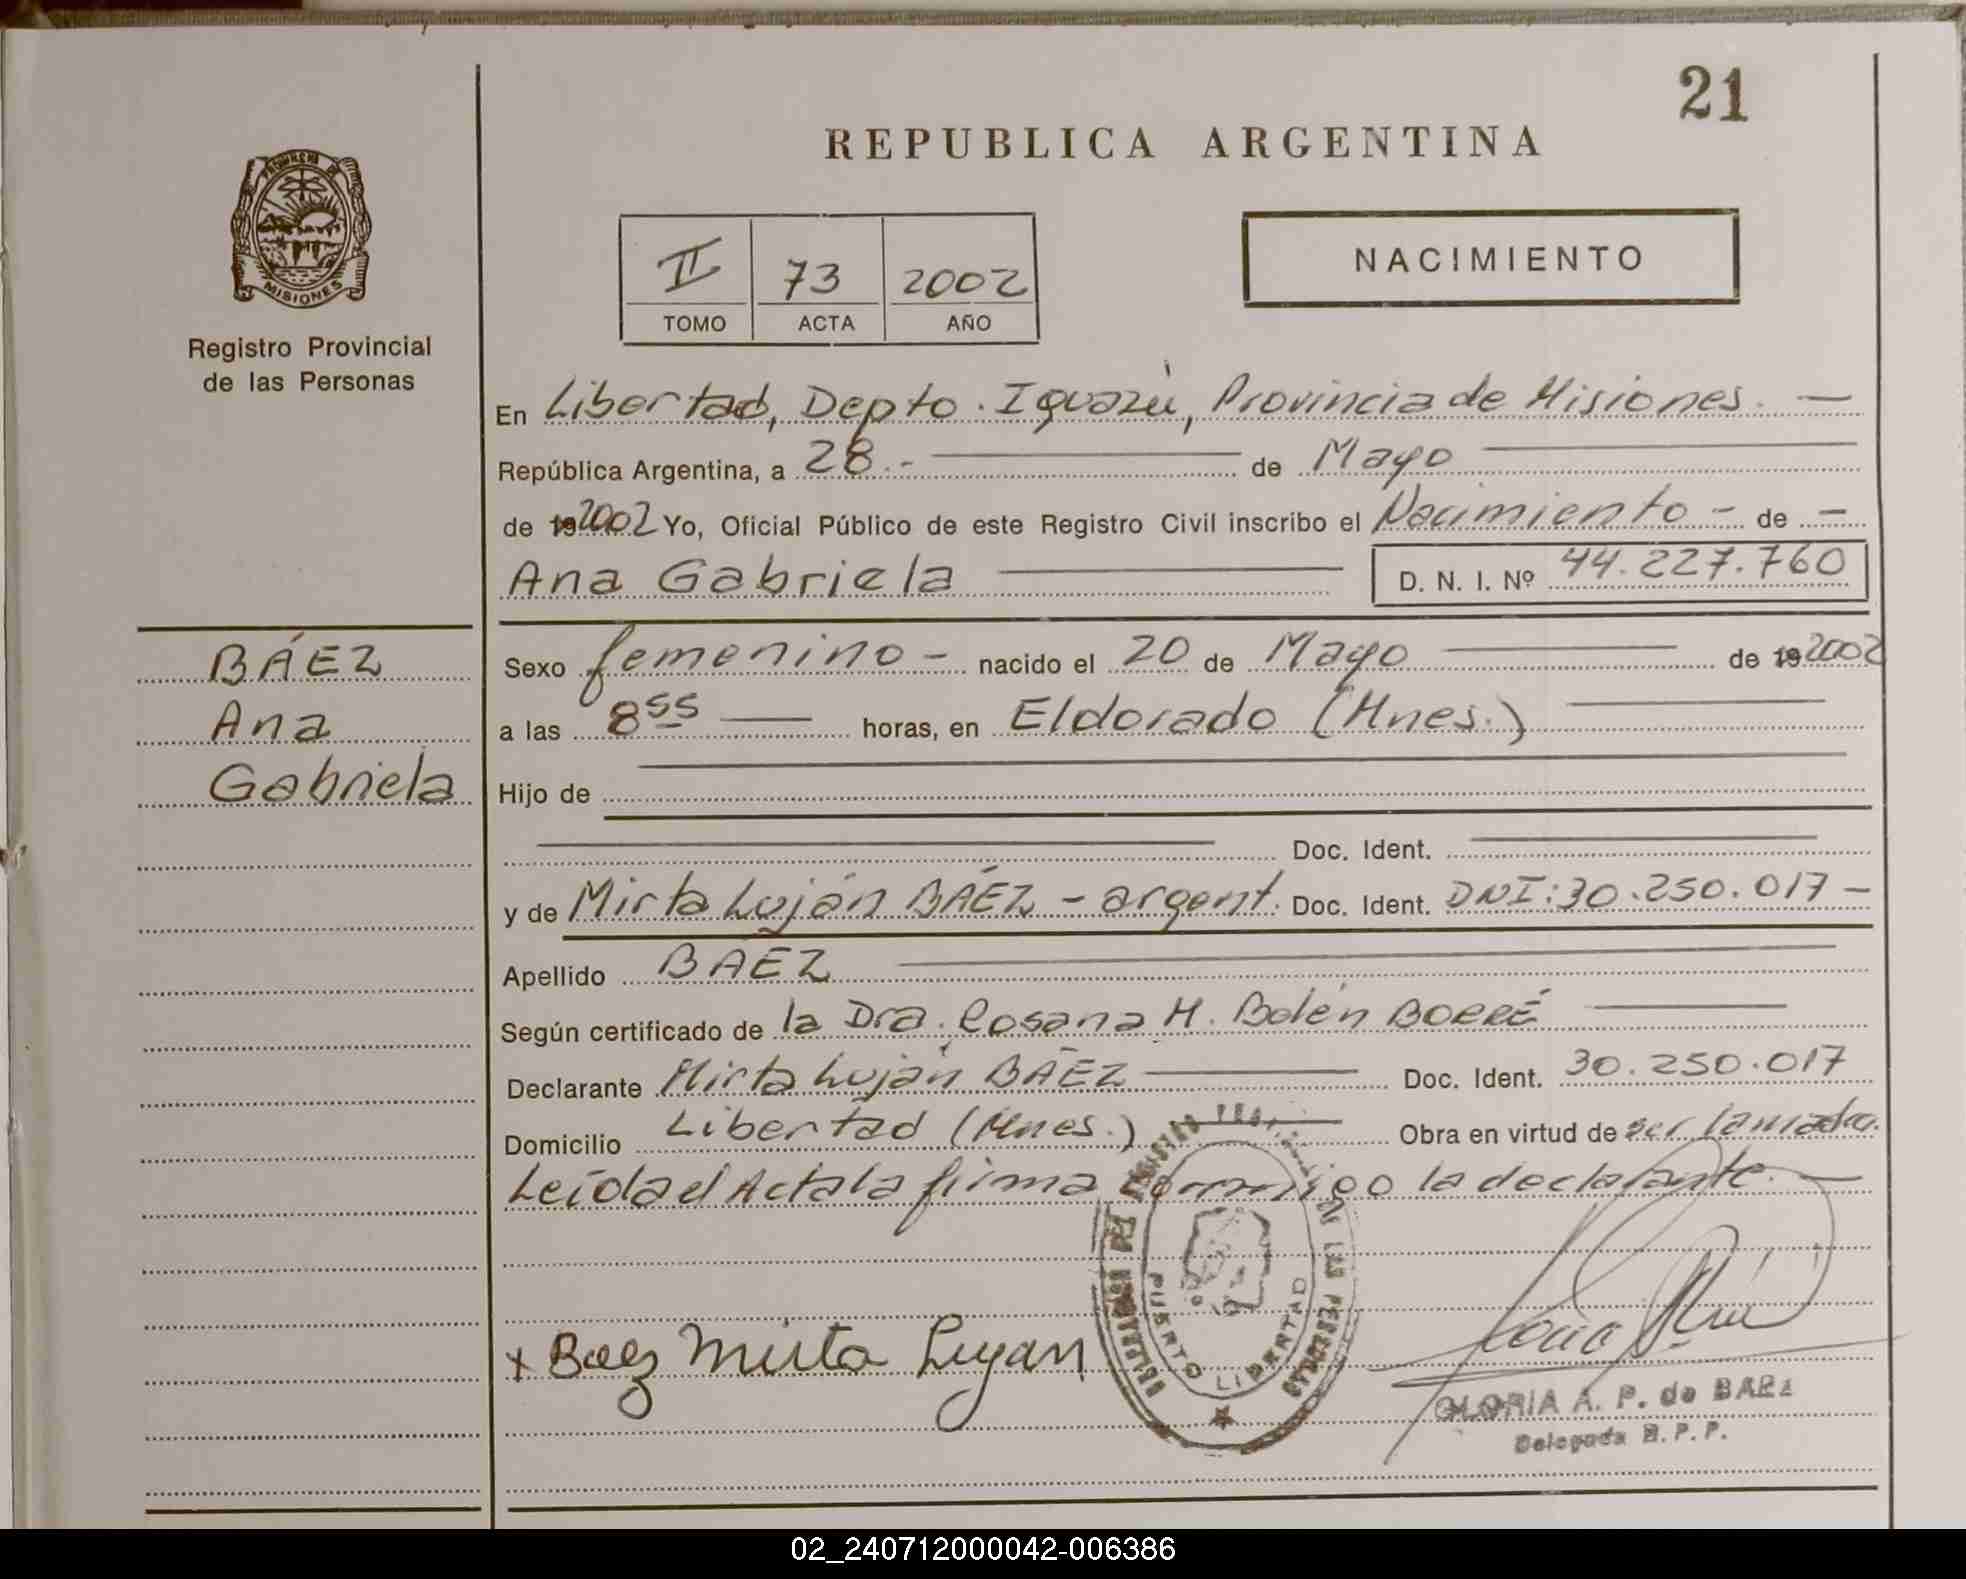 21
REPUBLICA ARGENTINA
PROVINCIA DE
MISIONES
Registro Provincial
de las Personas
II 73 2002
TOMO ACTA AÑO
NACIMIENTO
En Libertad, Depto. Iguazú, Provincia de Misiones. —
República Argentina, a 28.- — de Mayo —
de 19 2002 Yo, Oficial Público de este Registro Civil inscribo el Nacimiento - de —
Ana Gabriela — D. N. I. Nº 44.227.760
BÁEZ
Ana
Gabriela
Sexo femenino - nacido el 20 de Mayo — de 19 2002
a las 8 55 — horas, en Eldorado (Mnes.) —
Hijo de —
— Doc. Ident. —
y de Mirta Luján BÁEZ - argent. Doc. Ident. DNI: 30.250.017 —
Apellido BAEZ —
Según certificado de la Dra. Rosana M. Belén BORRÉ —
Declarante Mirta Luján BÁEZ — Doc. Ident. 30.250.017
Domicilio Libertad (Mnes.) — Obra en virtud de ser la madre.
Leída el Acta la firma conmigo la declarante. —
DE LAS PERSONAS
PUERTO LIBERTAD
x Baez Mirta Lujan
GLORIA A. P. de BAEZ
Delegada R. P. P.
02_240712000042-006386